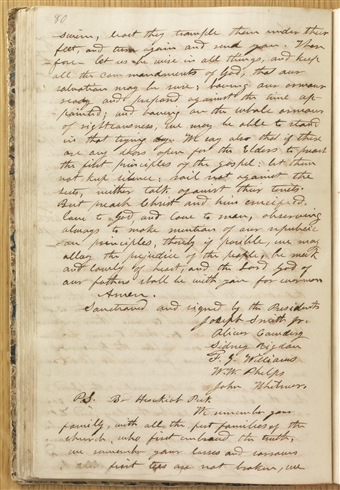 80
swine, least they trample them under their
feet, and turn again and rend you. There
fore let us be wise in all things, and keep
all the commandments of God, that our
salvation may be sure; having our armour
ready and prepared against the time ap-
pointed; and having on the whole armour
of righteousness, we may be able to stand
in that trying day. We say also that if there
are any doors open for the Elders to preach
the first principles of the gospel; let them
not keep silence; rail not against the
sects, neither talk against their tenets.
But preach Christ and him crucified.
love to God, and love to man, observing
always to make mention of our republi-
can principles, thereby if posible, we may
allay the prejudice of the people, be meek
and lowly of heart, and the Lord God of
our fathers shall be with you for evermore
Amen.
Sanctioned and signed by the Presidents
Joseph Smith jr.
Oliver Cowdery
Sidney Rigdon
F. G. Williams
W. W. Phelps
John Whitmer
P.S. Br Hezekiah Peck
We remember your
family, with all the first families of the
church, who first embraced the truth,
we remember your losses and sorrows
first ties are not broken, we